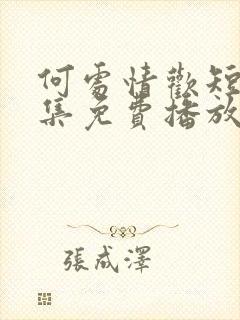 何處情歡短
集免費播放
張成澤